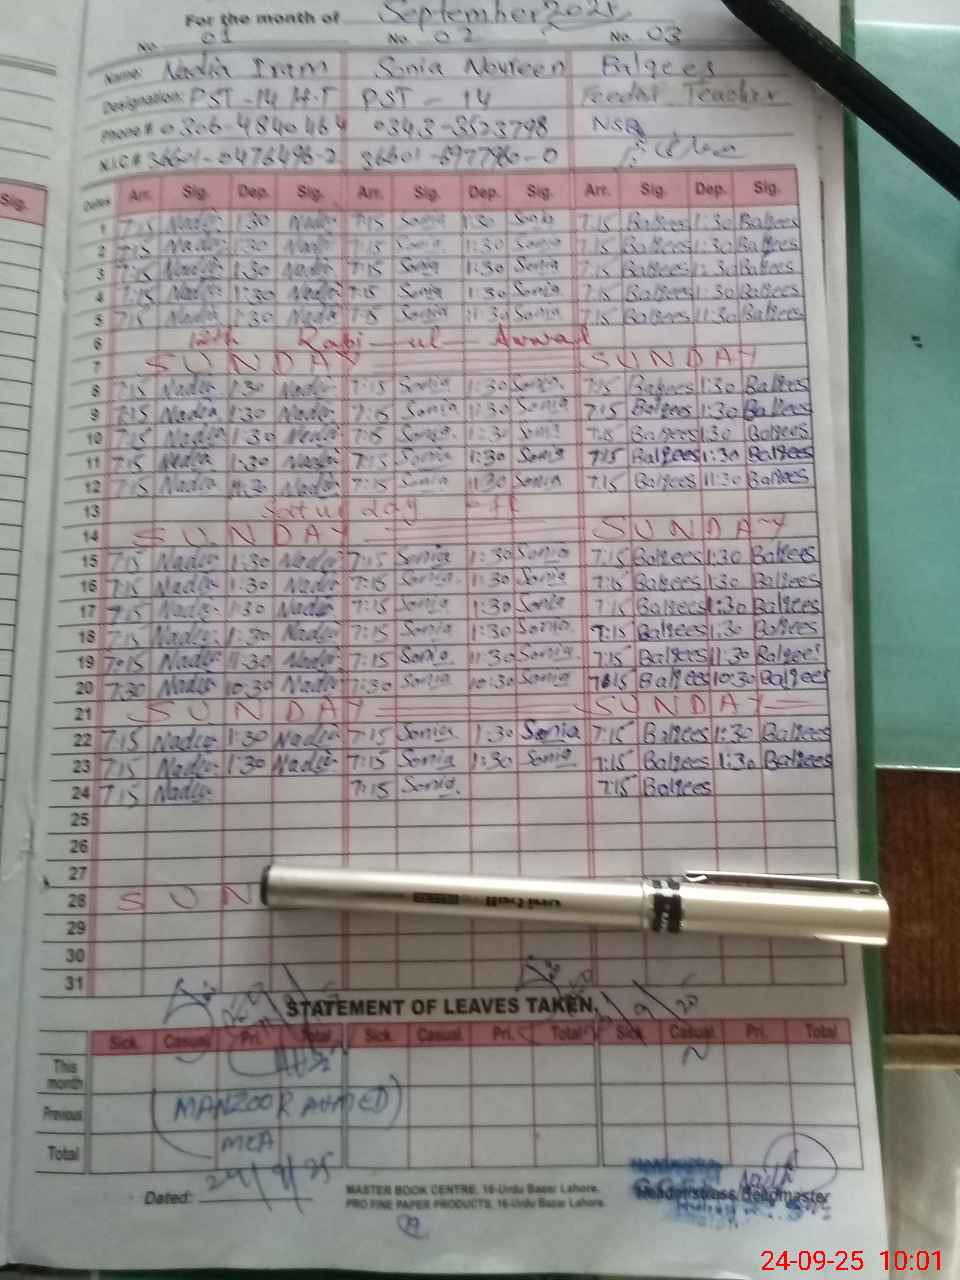 For the month of September 2025
No. 01 No. 02 No. 03
Name: Nadia Iram Sonia Noureen Balqees
Designation: PST-14 H.T PST-14 Feeder Teacher
Phone # 0306-4840464 0343-3523798 NSB
N.I.C # 36601-0476496-2
Dates Arr. Sig. Dep. Sig. Arr. Sig. Dep. Sig. Arr. Sig. Dep. Sig.
1 7:15 Nadia 1:30 Nadia 7:15 Sonia 1:30 Sonia 7:15 Balqees 1:30 Balqees
2 7:15 Nadia 1:30 Nadia 7:15 Sonia 1:30 Sonia 7:15 Balqees 1:30 Balqees
3 7:15 Nadia 1:30 Nadia 7:15 Sonia 1:30 Sonia 7:15 Balqees 1:30 Balqees
4 7:15 Nadia 1:30 Nadia 7:15 Sonia 1:30 Sonia 7:15 Balqees 1:30 Balqees
5 7:15 Nadia 1:30 Nadia 7:15 Sonia 11:30 Sonia 7:15 Balqees 11:30 Balqees
6 12th Rabi-ul-Awwal
7 SUNDAY SUNDAY
8 7:15 Nadia 1:30 Nadia 7:15 Sonia 1:30 Sonia 7:15 Balqees 1:30 Balqees
9 7:15 Nadia 1:30 Nadia 7:15 Sonia 1:30 Sonia 7:15 Balqees 1:30 Balqees
10 7:15 Nadia 1:30 Nadia 7:15 Sonia 1:30 Sonia 7:15 Balqees 1:30 Balqees
11 7:15 Nadia 1:30 Nadia 7:15 Sonia 1:30 Sonia 7:15 Balqees 1:30 Balqees
12 7:15 Nadia 11:30 Nadia 7:15 Sonia 11:30 Sonia 7:15 Balqees 11:30 Balqees
13 Saturday off
14 SUNDAY SUNDAY
15 7:15 Nadia 1:30 Nadia 7:15 Sonia 1:30 Sonia 7:15 Balqees 1:30 Balqees
16 7:15 Nadia 1:30 Nadia 7:15 Sonia 1:30 Sonia 7:15 Balqees 1:30 Balqees
17 7:15 Nadia 1:30 Nadia 7:15 Sonia 1:30 Sonia 7:15 Balqees 1:30 Balqees
18 7:15 Nadia 1:30 Nadia 7:15 Sonia 1:30 Sonia 7:15 Balqees 1:30 Balqees
19 7:15 Nadia 11:30 Nadia 7:15 Sonia 11:30 Sonia 7:15 Balqees 11:30 Balqees
20 7:30 Nadia 10:30 Nadia 7:30 Sonia 10:30 Sonia 7:15 Balqees 10:30 Balqees
21 SUNDAY SUNDAY
22 7:15 Nadia 1:30 Nadia 7:15 Sonia 1:30 Sonia 7:15 Balqees 1:30 Balqees
23 7:15 Nadia 1:30 Nadia 7:15 Sonia 1:30 Sonia 7:15 Balqees 1:30 Balqees
24 7:15 Nadia 7:15 Sonia 7:15 Balqees
25
26
27
28 SUN
29
30
31
STATEMENT OF LEAVES TAKEN
Sick. Casual. Pri. Total Sick. Casual. Pri. Total Sick. Casual. Pri. Total
This month
Previous (MANZOOR AHMED)
Total MEA
Dated: 24/9/25
MASTER BOOK CENTRE, 16-Urdu Bazar Lahore.
PRO FINE PAPER PRODUCTS, 16-Urdu Bazar Lahore.
Headmistress/Headmaster
uniball
24-09-25 10:01